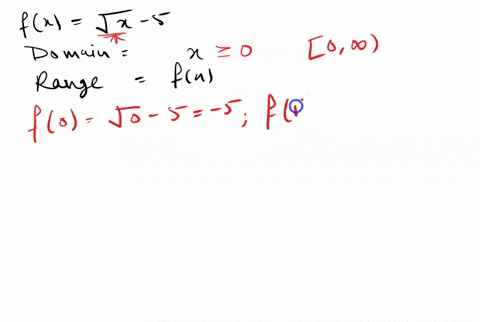 f(x) = √x - 5
Domain = x ≥ 0 [0, ∞)
Range = f(x)
f(0) = √0 - 5 = -5; f(